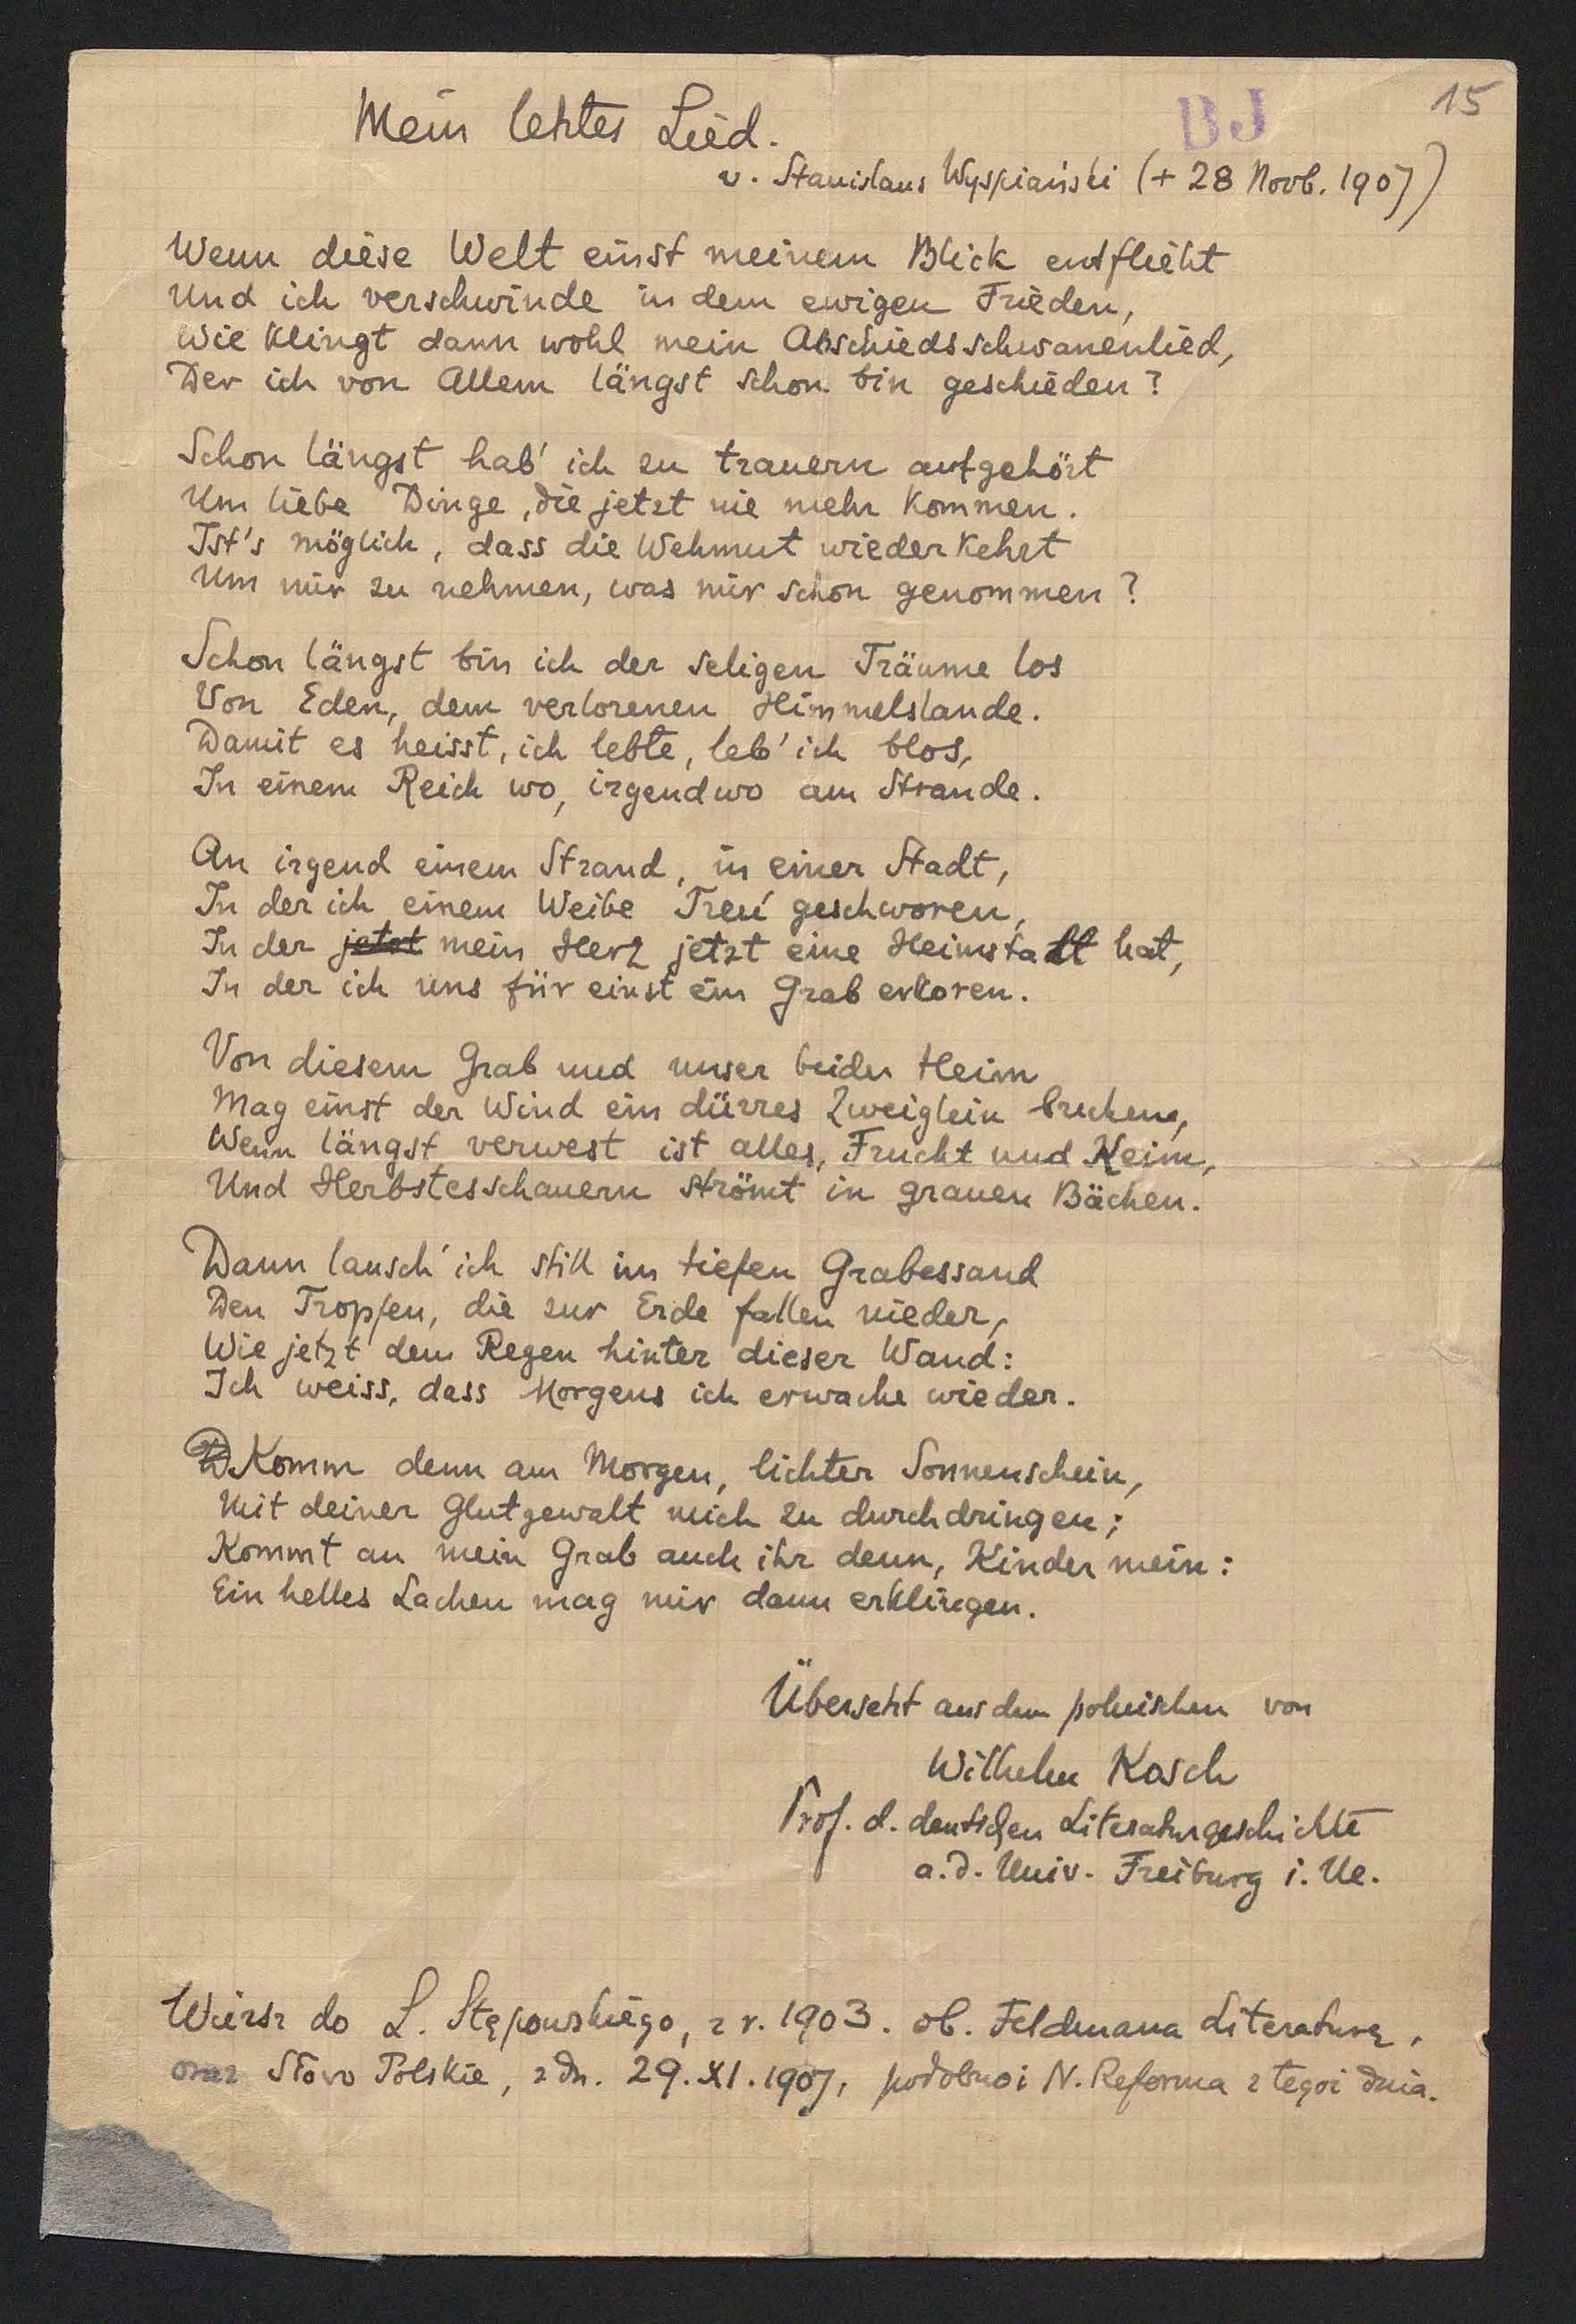 15
BJ
Mein letztes Lied.
v. Stanislaus Wyspiański (+ 28 Novb. 1907)
Wenn diese Welt einst meinem Blick entflieht
Und ich verschwinde in dem ewigen Frieden,
Wie klingt dann wohl mein Abschiedsschwanenlied,
Der ich von Allem längst schon bin geschieden?
Schon längst hab' ich zu trauern aufgehört
Um liebe Dinge, die jetzt nie mehr kommen.
Ist's möglich, dass die Wehmut wiederkehrt
Um mir zu nehmen, was mir schon genommen?
Schon längst bin ich der seligen Träume los
Von Eden, dem verlorenen Himmelslande.
Damit es heisst, ich lebte, leb' ich blos,
In einem Reich wo, irgendwo am Strande.
An irgend einem Strand, in einer Stadt,
In der ich einem Weibe Treu' geschworen,
In der jetzt mein Herz jetzt eine Heimstatt hat,
In der ich uns für einst ein Grab erkoren.
Von diesem Grab und unser beider Heim
Mag einst der Wind ein dürres Zweiglein brechen,
Wenn längst verwest ist alles, Frucht und Keim,
Und Herbstesschauern strömt in grauen Bächen.
Dann lausch' ich still im tiefen Grabessand
Den Tropfen, die zur Erde fallen nieder,
Wie jetzt dem Regen hinter dieser Wand:
Ich weiss, dass Morgens ich erwache wieder.
D Komm denn am Morgen, lichter Sonnenschein,
Mit deiner Glutgewalt mich zu durchdringen;
Kommt an mein Grab auch ihr denn, Kinder mein:
Ein helles Lachen mag mir dann erklingen.
Übersetzt aus dem polnischen von
Wilhelm Kosch
Prof. d. deutschen Literaturgeschichte
a. d. Univ. Freiburg i. Ue.
Wiersz do L. Stępowskiego, z r. 1903. ob. Feldmana Literaturę,
oraz Słowo Polskie, z dn. 29. XI. 1907, podobno i N. Reforma z tegoż dnia.